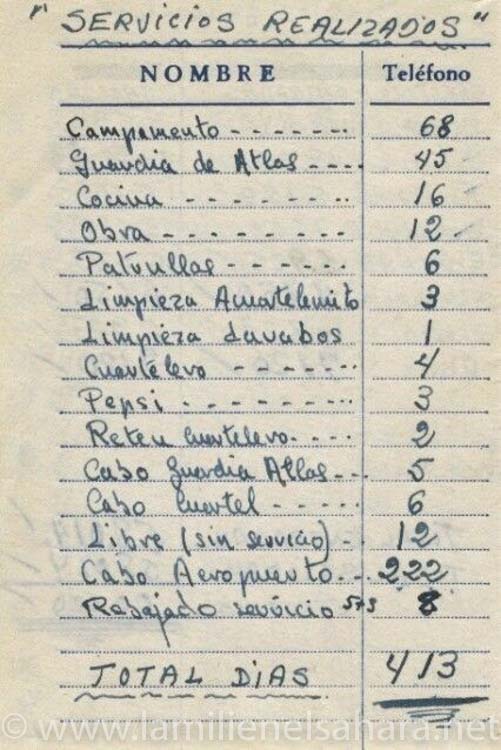 "SERVICIOS REALIZADOS"
NOMBRE Teléfono
Campamento - - - - - - 68
Guardia de Atlas - - - - 45
Cocina - - - - - - - - 16
Obra - - - - - - - - 12
Patrullas - - - - - - 6
Limpieza Acuartelmto 3
Limpieza Lavabos 1
Cuartelero - - - - - - - 4
Pepsi - - - - - - - - - 3
Reten Cuartelero - - - - 2
Cabo Guardia Atlas - - - 5
Cabo Cuartel - - - - - 6
Libre (sin servicio) - - 12
Cabo Aeropuerto - - - 222
Rebajado servicio 8
TOTAL DIAS 413
© www.lamilienelsahara.net